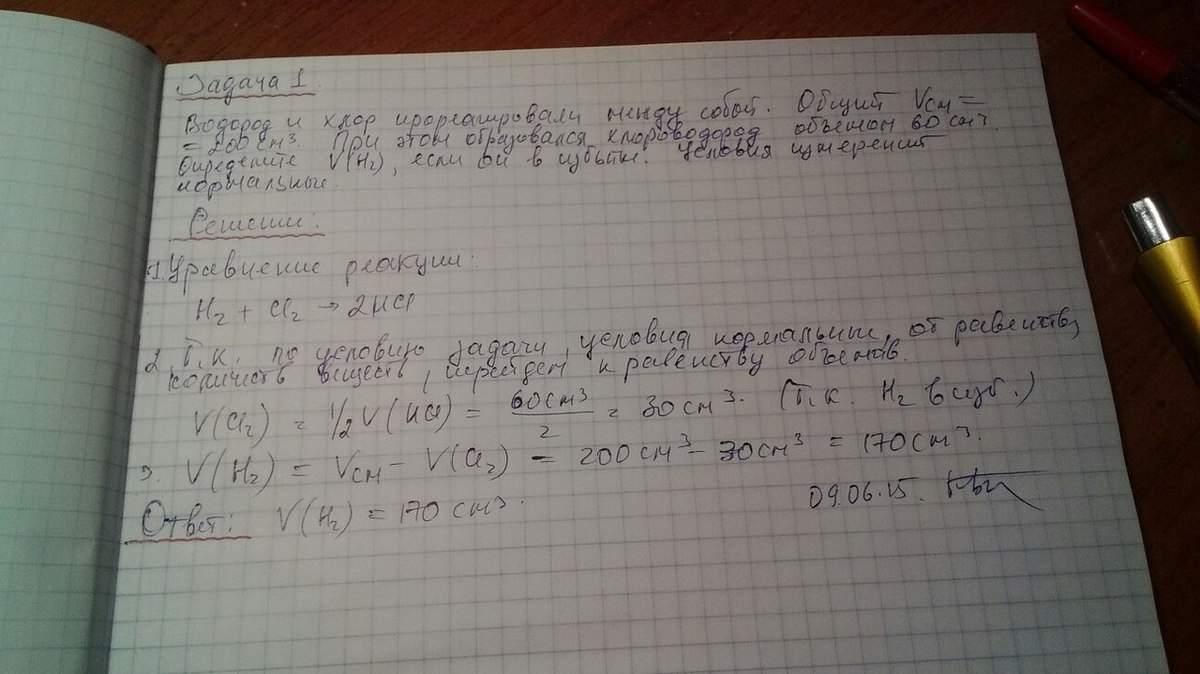 Задача 1.
Водород и хлор прореагировали между собой. Общий Vсм =
= 200 см³. При этом образовался хлороводород объемом 60 см³.
Определите V(H₂), если он в избытке. Условия измерения
нормальные.
Решение:
1. Уравнение реакции:
H₂ + Cl₂ → 2HCl
2. Т.к. по условию задачи, условия нормальные, от равенства
количеств веществ, перейдем к равенству объемов.
V(Cl₂) = 1/2 V(HCl) = 60 см³/2 = 30 см³. (Т.к. H₂ в изб.)
3. V(H₂) = Vсм - V(Cl₂) = 200 см³ - 30 см³ = 170 см³.
Ответ: V(H₂) = 170 см³.
09.06.15.